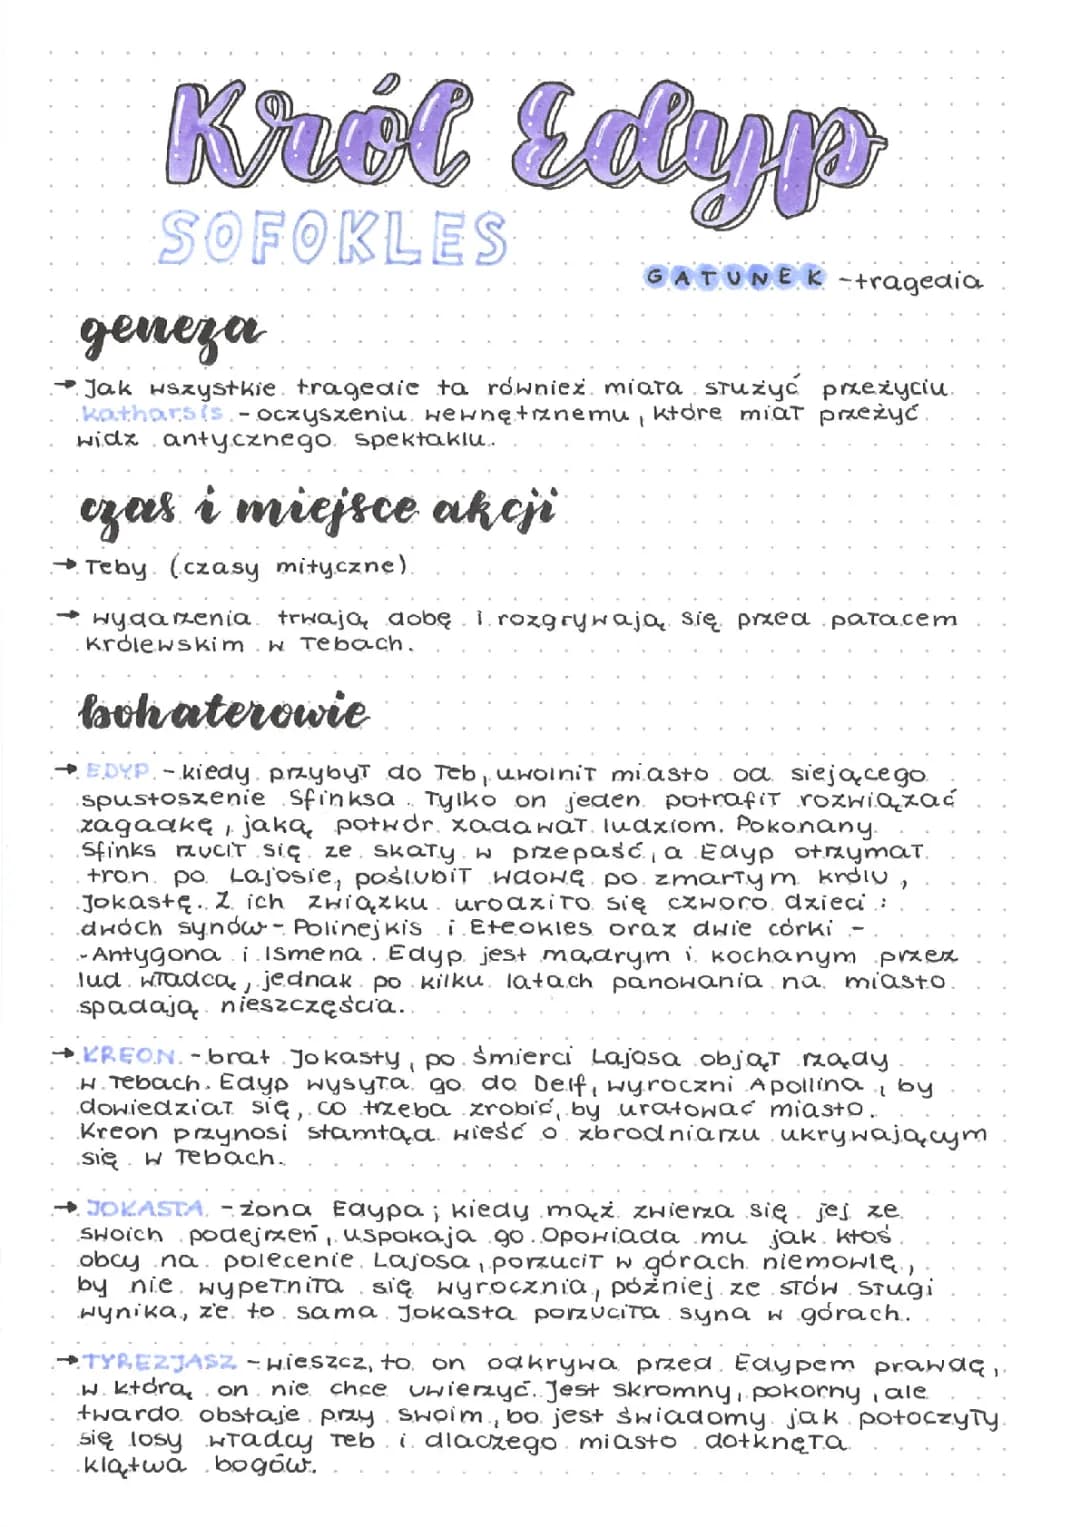 Król Edyp
SOFOKLES
GATUNEK -tragedia
geneza
→ Jak wszystkie tragedie ta również miała służyć przeżyciu
katharsis - oczyszeniu wewnętrznemu, które miał przeżyć
widz antycznego spektaklu.
czas i miejsce akcji
→ Teby (czasy mityczne)
→ wydarzenia trwają dobę i rozgrywają się przed pałacem
królewskim w Tebach.
bohaterowie
→ EDYP - kiedy przybył do Teb, uwolnił miasto od siejącego
spustoszenie Sfinksa. Tylko on jeden potrafił rozwiązać
zagadkę, jaką potwór zadawał ludziom. Pokonany
Sfinks rzucił się ze skały w przepaść, a Edyp otrzymał
tron po Lajosie, poślubił wdowę po zmarłym królu,
Jokastę. Z ich związku urodziło się czworo dzieci:
dwóch synów - Polinejkis i Eteokles oraz dwie córki -
- Antygona i Ismena. Edyp jest mądrym i kochanym przez
lud władcą, jednak po kilku latach panowania na miasto
spadają nieszczęścia.
→ KREON - brat Jokasty, po śmierci Lajosa objął rządy
w Tebach. Edyp wysyła go do Delf, wyroczni Apollina, by
dowiedział się, co trzeba zrobić, by uratować miasto.
Kreon przynosi stamtąd wieść o zbrodniarzu ukrywającym
się w Tebach.
→ JOKASTA - żona Edypa; kiedy mąż zwierza się jej ze
swoich podejrzeń, uspokaja go. Opowiada mu jak ktoś
obcy na polecenie Lajosa, porzucił w górach niemowlę,
by nie wypełniła się wyrocznia, później ze słów sługi
wynika, że to sama Jokasta porzuciła syna w górach.
→ TYREZJASZ - wieszcz, to on odkrywa przed Edypem prawdę,
w którą on nie chce uwierzyć. Jest skromny, pokorny, ale
twardo obstaje przy swoim, bo jest świadomy jak potoczyły
się losy władcy Teb i dlaczego miasto dotknęła
klątwa bogów.